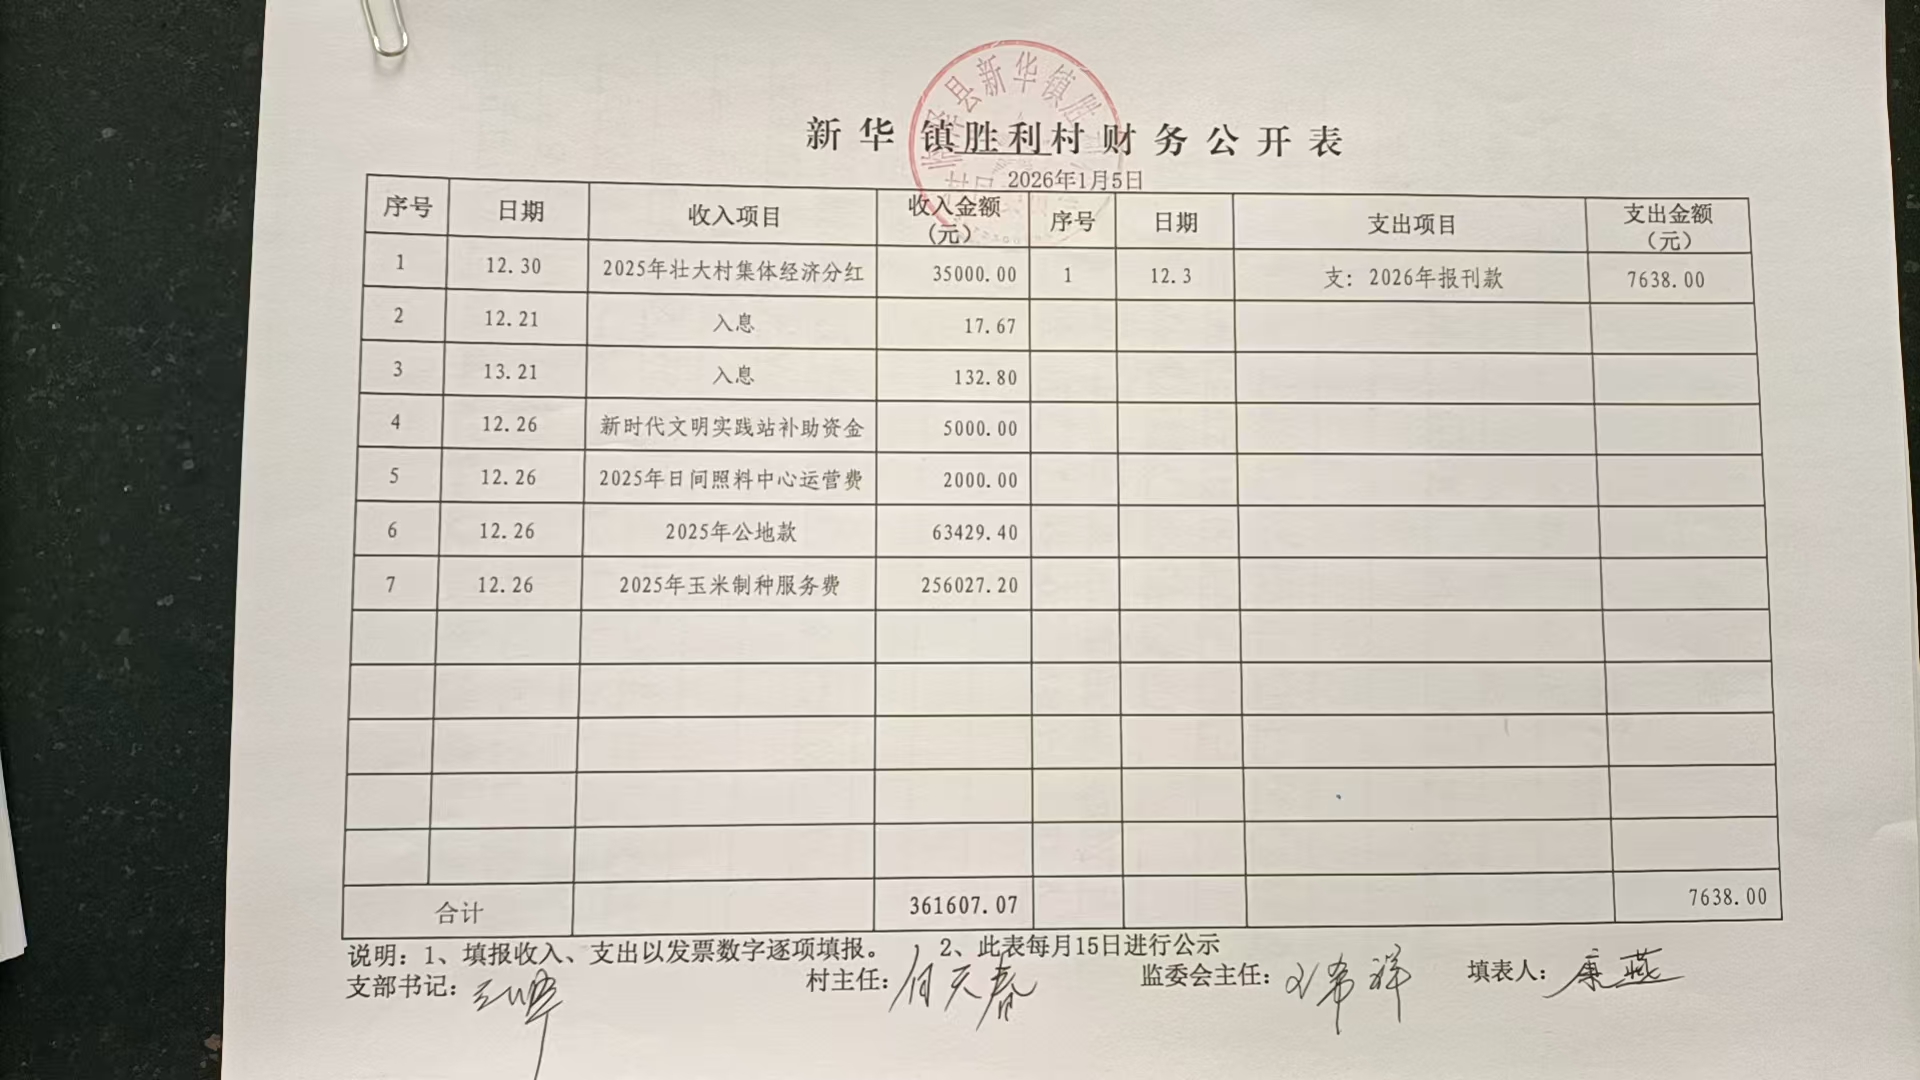 新华镇胜利村财务公开表
2026年1月5日
序号 日期 收入项目 收入金额(元) 序号 日期 支出项目 支出金额(元)
1 12.30 2025年壮大村集体经济分红 35000.00 1 12.3 支：2026年报刊款 7638.00
2 12.21 入息 17.67
3 13.21 入息 132.80
4 12.26 新时代文明实践站补助资金 5000.00
5 12.26 2025年日间照料中心运营费 2000.00
6 12.26 2025年公地款 63429.40
7 12.26 2025年玉米制种服务费 256027.20
合计 361607.07 7638.00
说明：1、填报收入、支出以发票数字逐项填报。 2、此表每月15日进行公示
支部书记： 村主任：何天春 监委会主任：刘希祥 填表人：康燕
县新华镇胜